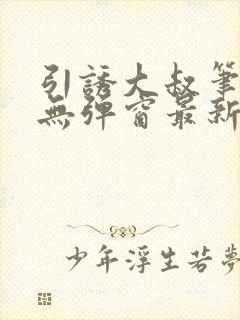 引誘大叔筆
無彈窗最新
少年浮生若夢